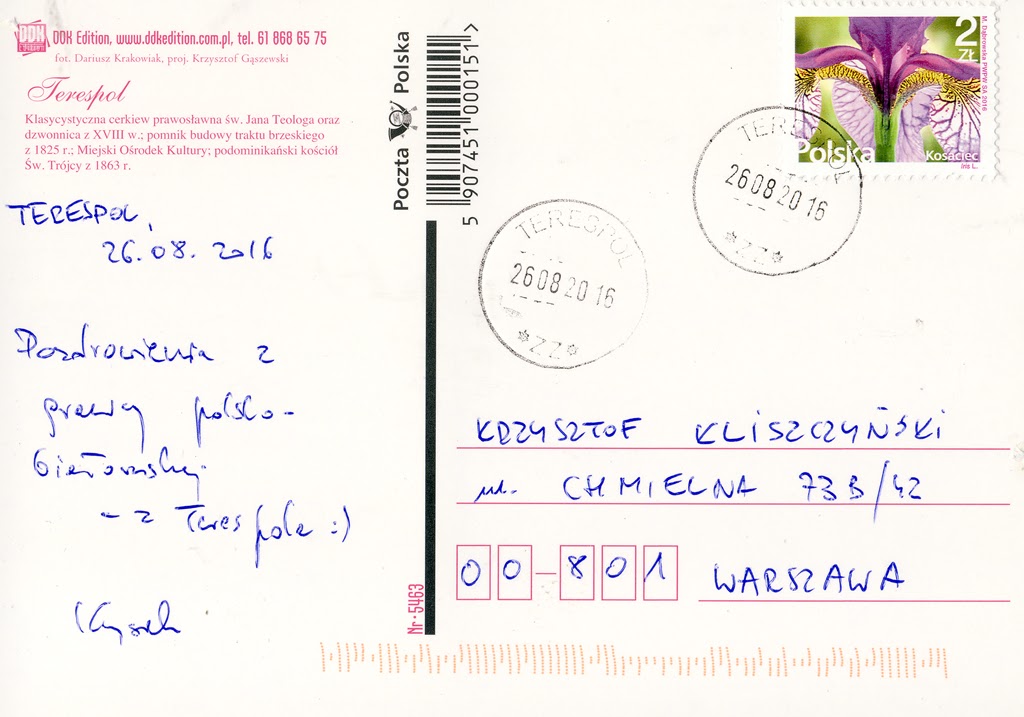 DDK Edition, www.ddkedition.com.pl, tel. 61 868 65 75
fot. Dariusz Krakowiak, proj. Krzysztof Gąszewski
Terespol
Klasycystyczna cerkiew prawosławna św. Jana Teologa oraz
dzwonnica z XVIII w.; pomnik budowy traktu brzeskiego
z 1825 r.; Miejski Ośrodek Kultury; podominikański kościół
Św. Trójcy z 1863 r.
TERESPOL,
26.08.2016
Pozdrowienia z
granicy polsko-
białoruskiej
- z Terespola :)
Krzysiek
Poczta Polska
5 907451 000151 >
Nr-5463
TERESPOL
26 08 20 16
*ZZ*
TERESPOL
26 08 20 16
*ZZ*
2
ZŁ
M. Dąbrowska PWPW SA 2016
Polska
Kosaciec
Iris L.
KRZYSZTOF KLISZCZYŃSKI
ul. CHMIELNA 73B/42
00-801 WARSZAWA